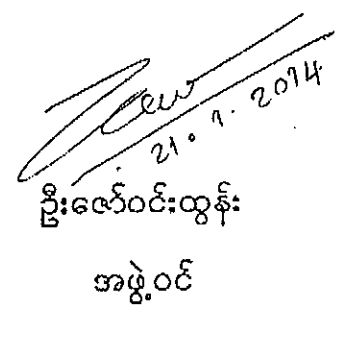 21.1.2014
ဦးဇော်ဝင်းထွန်း
အဖွဲ့ဝင်